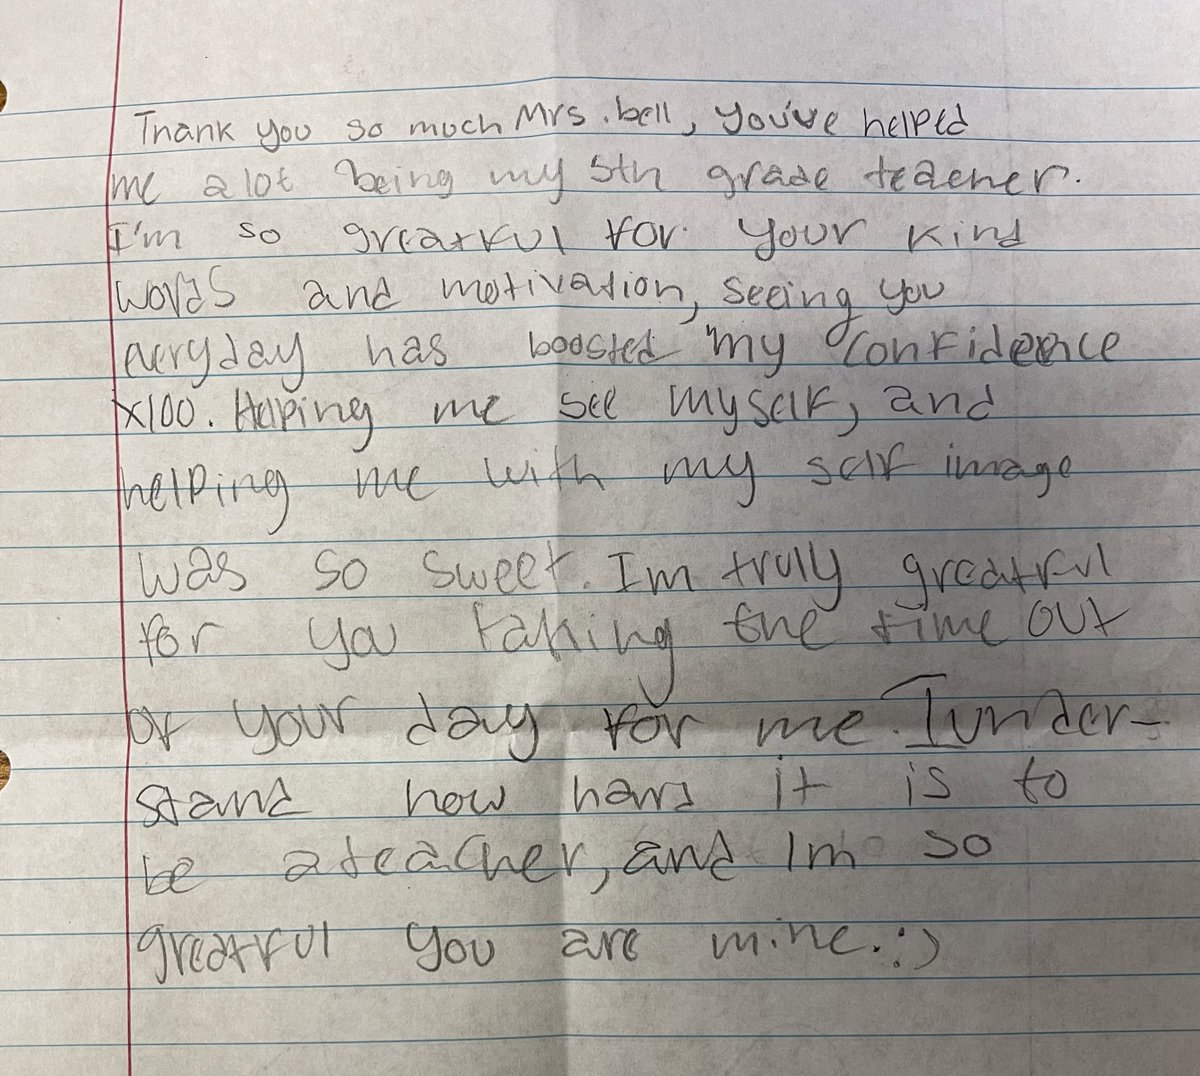 Thank you so much Mrs. bell, you've helped
me a lot being my 5th grade teacher.
I'm so greatful for your kind
words and motivation, seeing you
everyday has boosted my confidence
x100. Helping me see myself, and
helping me with my self image
was so sweet. Im truly greatful
for you taking the time out
of your day for me. I under-
stand how hard it is to
be a teacher, and Im so
greatful you are mine. :)